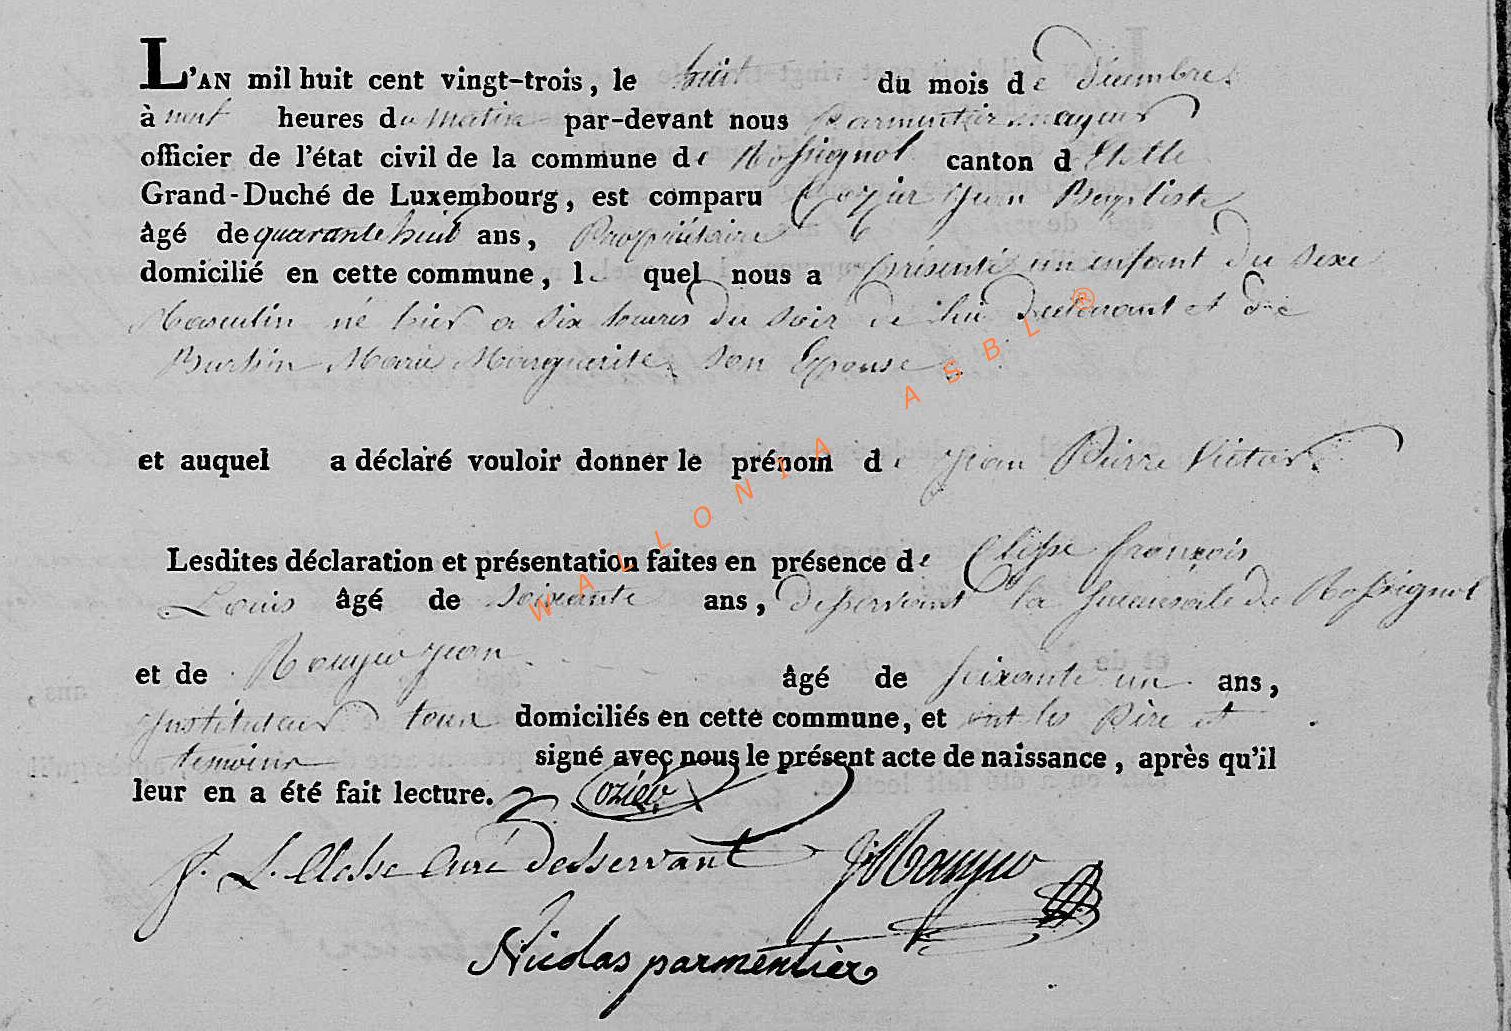 L'AN mil huit cent vingt-trois, le huit du mois de décembre
à neuf heures du matin par-devant nous Parmentier mayeur
officier de l'état civil de la commune de Rossignol canton d'Etalle
Grand-Duché de Luxembourg, est comparu Cozier Jean Baptiste
âgé de quarante huit ans, Propriétaire
domicilié en cette commune, lequel nous a présenté un enfant du sexe
Masculin né hier a six heures du soir de lui declarant et de
Marie Marguerite son Epouse
et auquel a déclaré vouloir donner le prénom de Jean Pierre Victor
Lesdites déclaration et présentation faites en présence de françois
Louis âgé de soixante ans, desservant la succursale de Rossignol
et de Rouyer jean âgé de soixante un ans,
instituteur tous domiciliés en cette commune, et ont les Père et
temoins signé avec nous le présent acte de naissance, après qu'il
leur en a été fait lecture. Cozier
f. L. Curé desservant J Rouyer
Nicolas parmentier
WALLONIA ASBL ®